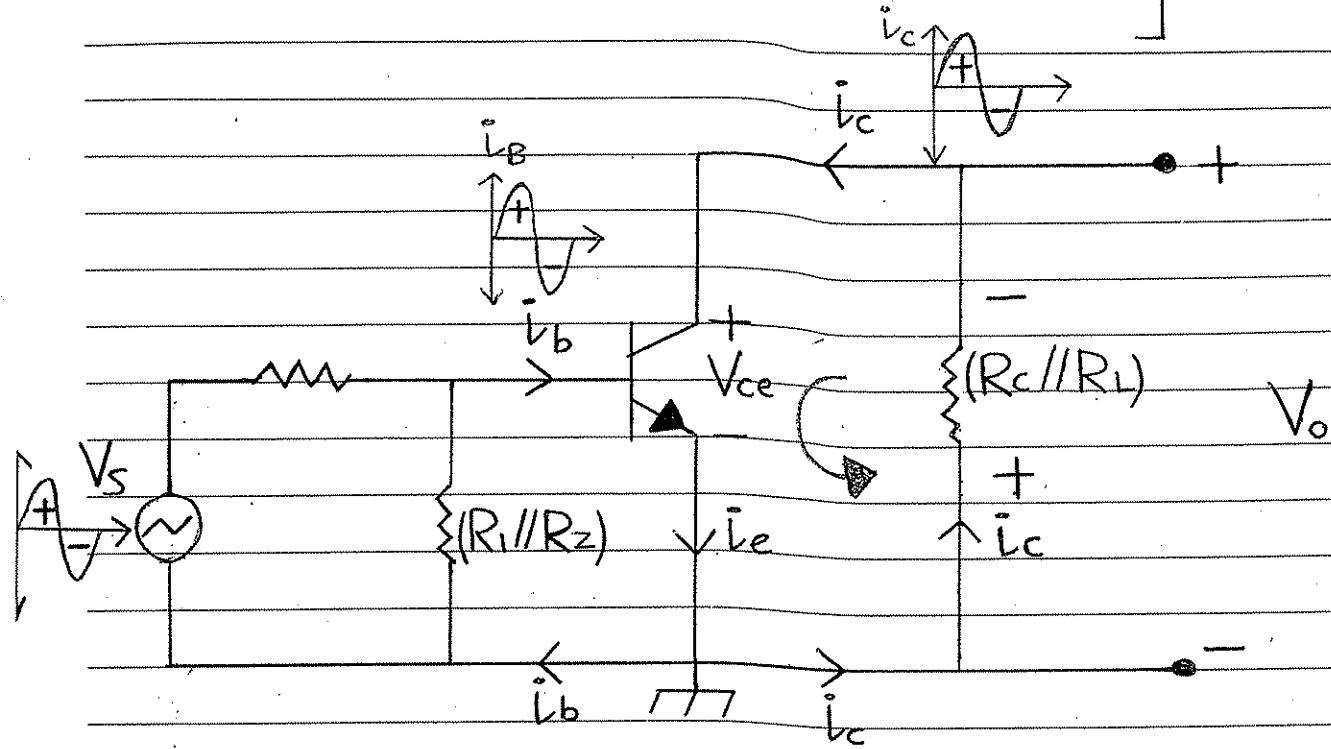 ic
+
-
ic
+
iB
+
-
ib
-
+
Vce
-
(Rc//RL)
Vo
Vs
+
-
(R1//R2)
ie
+
ic
-
ib
ic